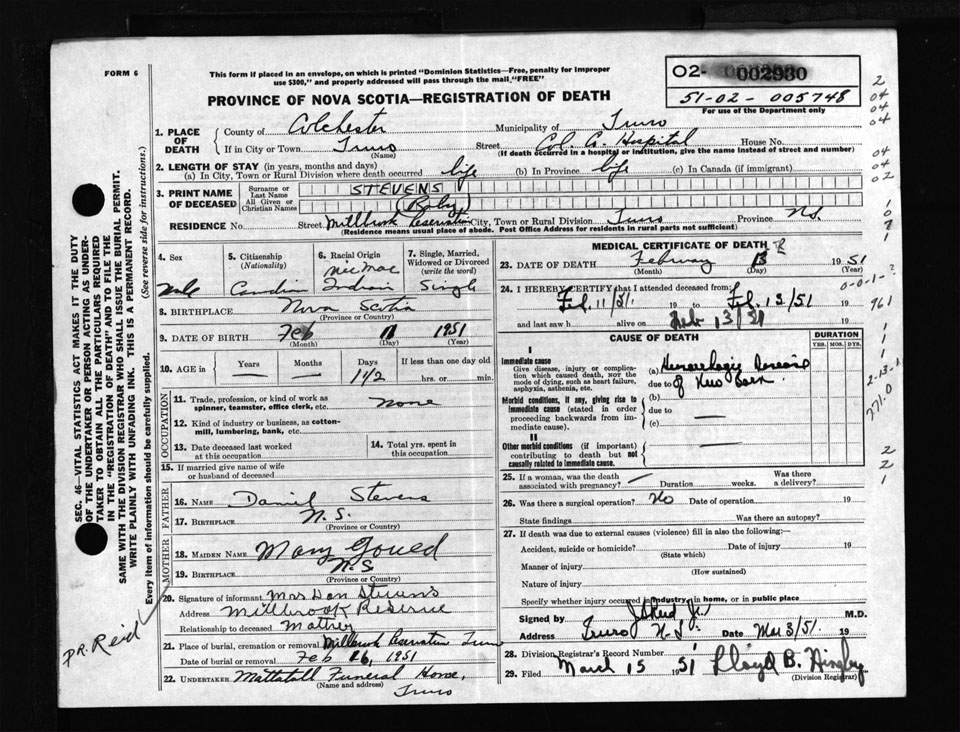 FORM 6
This form if placed in an envelope, on which is printed "Dominion Statistics—Free, penalty for improper
use $300," and properly addressed will pass through the mail "FREE"
PROVINCE OF NOVA SCOTIA—REGISTRATION OF DEATH
02- 002930
51-02-005748
For use of the Department only
1. PLACE OF DEATH
County of Colchester Municipality of Truro
If in City or Town Truro Street Col. Co. Hospital House No.
(Name) (If death occurred in a hospital or institution, give the name instead of street and number)
2. LENGTH OF STAY (in years, months and days)
(a) In City, Town or Rural Division where death occurred life (b) In Province life (c) In Canada (if immigrant)
3. PRINT NAME OF DECEASED
Surname or Last Name STEVENS
All Given or Christian Names (Baby)
RESIDENCE No. Street Millbrook Reservation City, Town or Rural Division Truro Province N.S.
(Residence means usual place of abode. Post Office Address for residents in rural parts not sufficient)
4. Sex Male
5. Citizenship (Nationality) Canadian
6. Racial Origin Mic Mac Indian
7. Single, Married, Widowed or Divorced (write the word) Single
8. BIRTHPLACE Nova Scotia
(Province or Country)
9. DATE OF BIRTH Feb 11 1951
(Month) (Day) (Year)
10. AGE IN Years — Months — Days 1 1/2 If less than one day hrs. or min.
OCCUPATION
11. Trade, profession, or kind of work as spinner, teamster, office clerk, etc. None
12. Kind of industry or business, as cotton-mill, lumbering, bank, etc.
13. Date deceased last worked at this occupation
14. Total yrs. spent in this occupation
15. If married give name of wife or husband of deceased
FATHER
16. NAME Daniel Stevens
17. BIRTHPLACE N.S.
(Province or Country)
MOTHER
18. MAIDEN NAME Mary Gould
19. BIRTHPLACE N.S
(Province or Country)
20. Signature of informant Mrs Dan Stevens
Address Millbrook Reserve
Relationship to deceased Mother
21. Place of burial, cremation or removal Millbrook Reservation Truro
Date of burial or removal Feb 16, 1951
22. UNDERTAKER Mattatall Funeral Home,
(Name and address) Truro
MEDICAL CERTIFICATE OF DEATH
23. DATE OF DEATH February 13 1951
(Month) (Day) (Year)
24. I HEREBY CERTIFY that I attended deceased from
Feb. 11/51 19 to Feb. 13/51
and last saw h alive on Feb 13/51 19
CAUSE OF DEATH
DURATION
YRS. MOS. DYS.
I
Immediate cause
Give disease, injury or complication which caused death, not the mode of dying, such as heart failure, asphyxia, asthenia, etc.
(a) Hemorrhagic Disease
due to of New Born
Morbid conditions, if any, giving rise to immediate cause (stated in order proceeding backwards from immediate cause).
(b)
due to —
(c)
II
Other morbid conditions (if important) contributing to death but not causally related to immediate cause. —
25. If a woman, was the death associated with pregnancy? — Duration weeks. Was there a delivery?
26. Was there a surgical operation? No Date of operation 19
State findings Was there an autopsy?
27. If death was due to external causes (violence) fill in also the following:—
Accident, suicide or homicide? Date of injury 19
(State which)
Manner of injury
(How sustained)
Nature of injury
Specify whether injury occurred in industry, in home, or in public place
Signed by Reid Jr. M.D.
Address Truro N.S. Date Mar 3/51 19
28. Division Registrar's Record Number
29. Filed March 15 51 Lloyd B.
(Division Registrar)
SEC. 46—VITAL STATISTICS ACT MAKES IT THE DUTY
OF THE UNDERTAKER OR PERSON ACTING AS UNDER-
TAKER TO OBTAIN ALL THE PARTICULARS REQUIRED
IN THE "REGISTRATION OF DEATH" AND TO FILE THE
SAME WITH THE DIVISION REGISTRAR WHO SHALL ISSUE THE BURIAL PERMIT.
WRITE PLAINLY WITH UNFADING INK. THIS IS A PERMANENT RECORD.
Every item of information should be carefully supplied. (See reverse side for instructions.)
DR. Reid
2
04
04
04
04
04
02
0-0-1-2
961
2-13-1
771.0
2
2
1